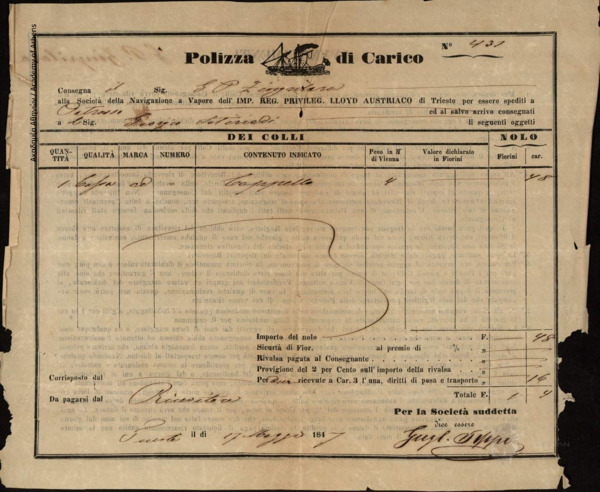 Ακαδημία Αθηνών / Academy of Athens
Polizza di Carico
Nº 431
Consegna il Sig.
alla Società della Navigazione a Vapore dell' IMP. REG. PRIVILEG. LLOYD AUSTRIACO di Trieste per essere spediti a
ed al salvo arrivo consegnati
a Sig. Giorgio li seguenti oggetti
DEI COLLI NOLO
QUANTITÀ QUALITÀ MARCA NUMERO CONTENUTO INDICATO Peso in lb di Vienna Valore dichiarato in Fiorini Fiorini car.
1 Cassa Cappello 4 48
Importo del nolo F. 48
Sicurtà di Fior. al premio di % „
Rivalsa pagata al Consegnante „
Provigione del 2 per Cento sull'importo della rivalsa „
Corrisposto dal
Per due ricevute a Car. 3 l'una, diritti di posa e trasporto „ 16
Da pagarsi dal Ricevitore
Totale F. 1 4
Per la Società suddetta
Trieste li di 17 Maggio 1847
dice essere
Gugl.